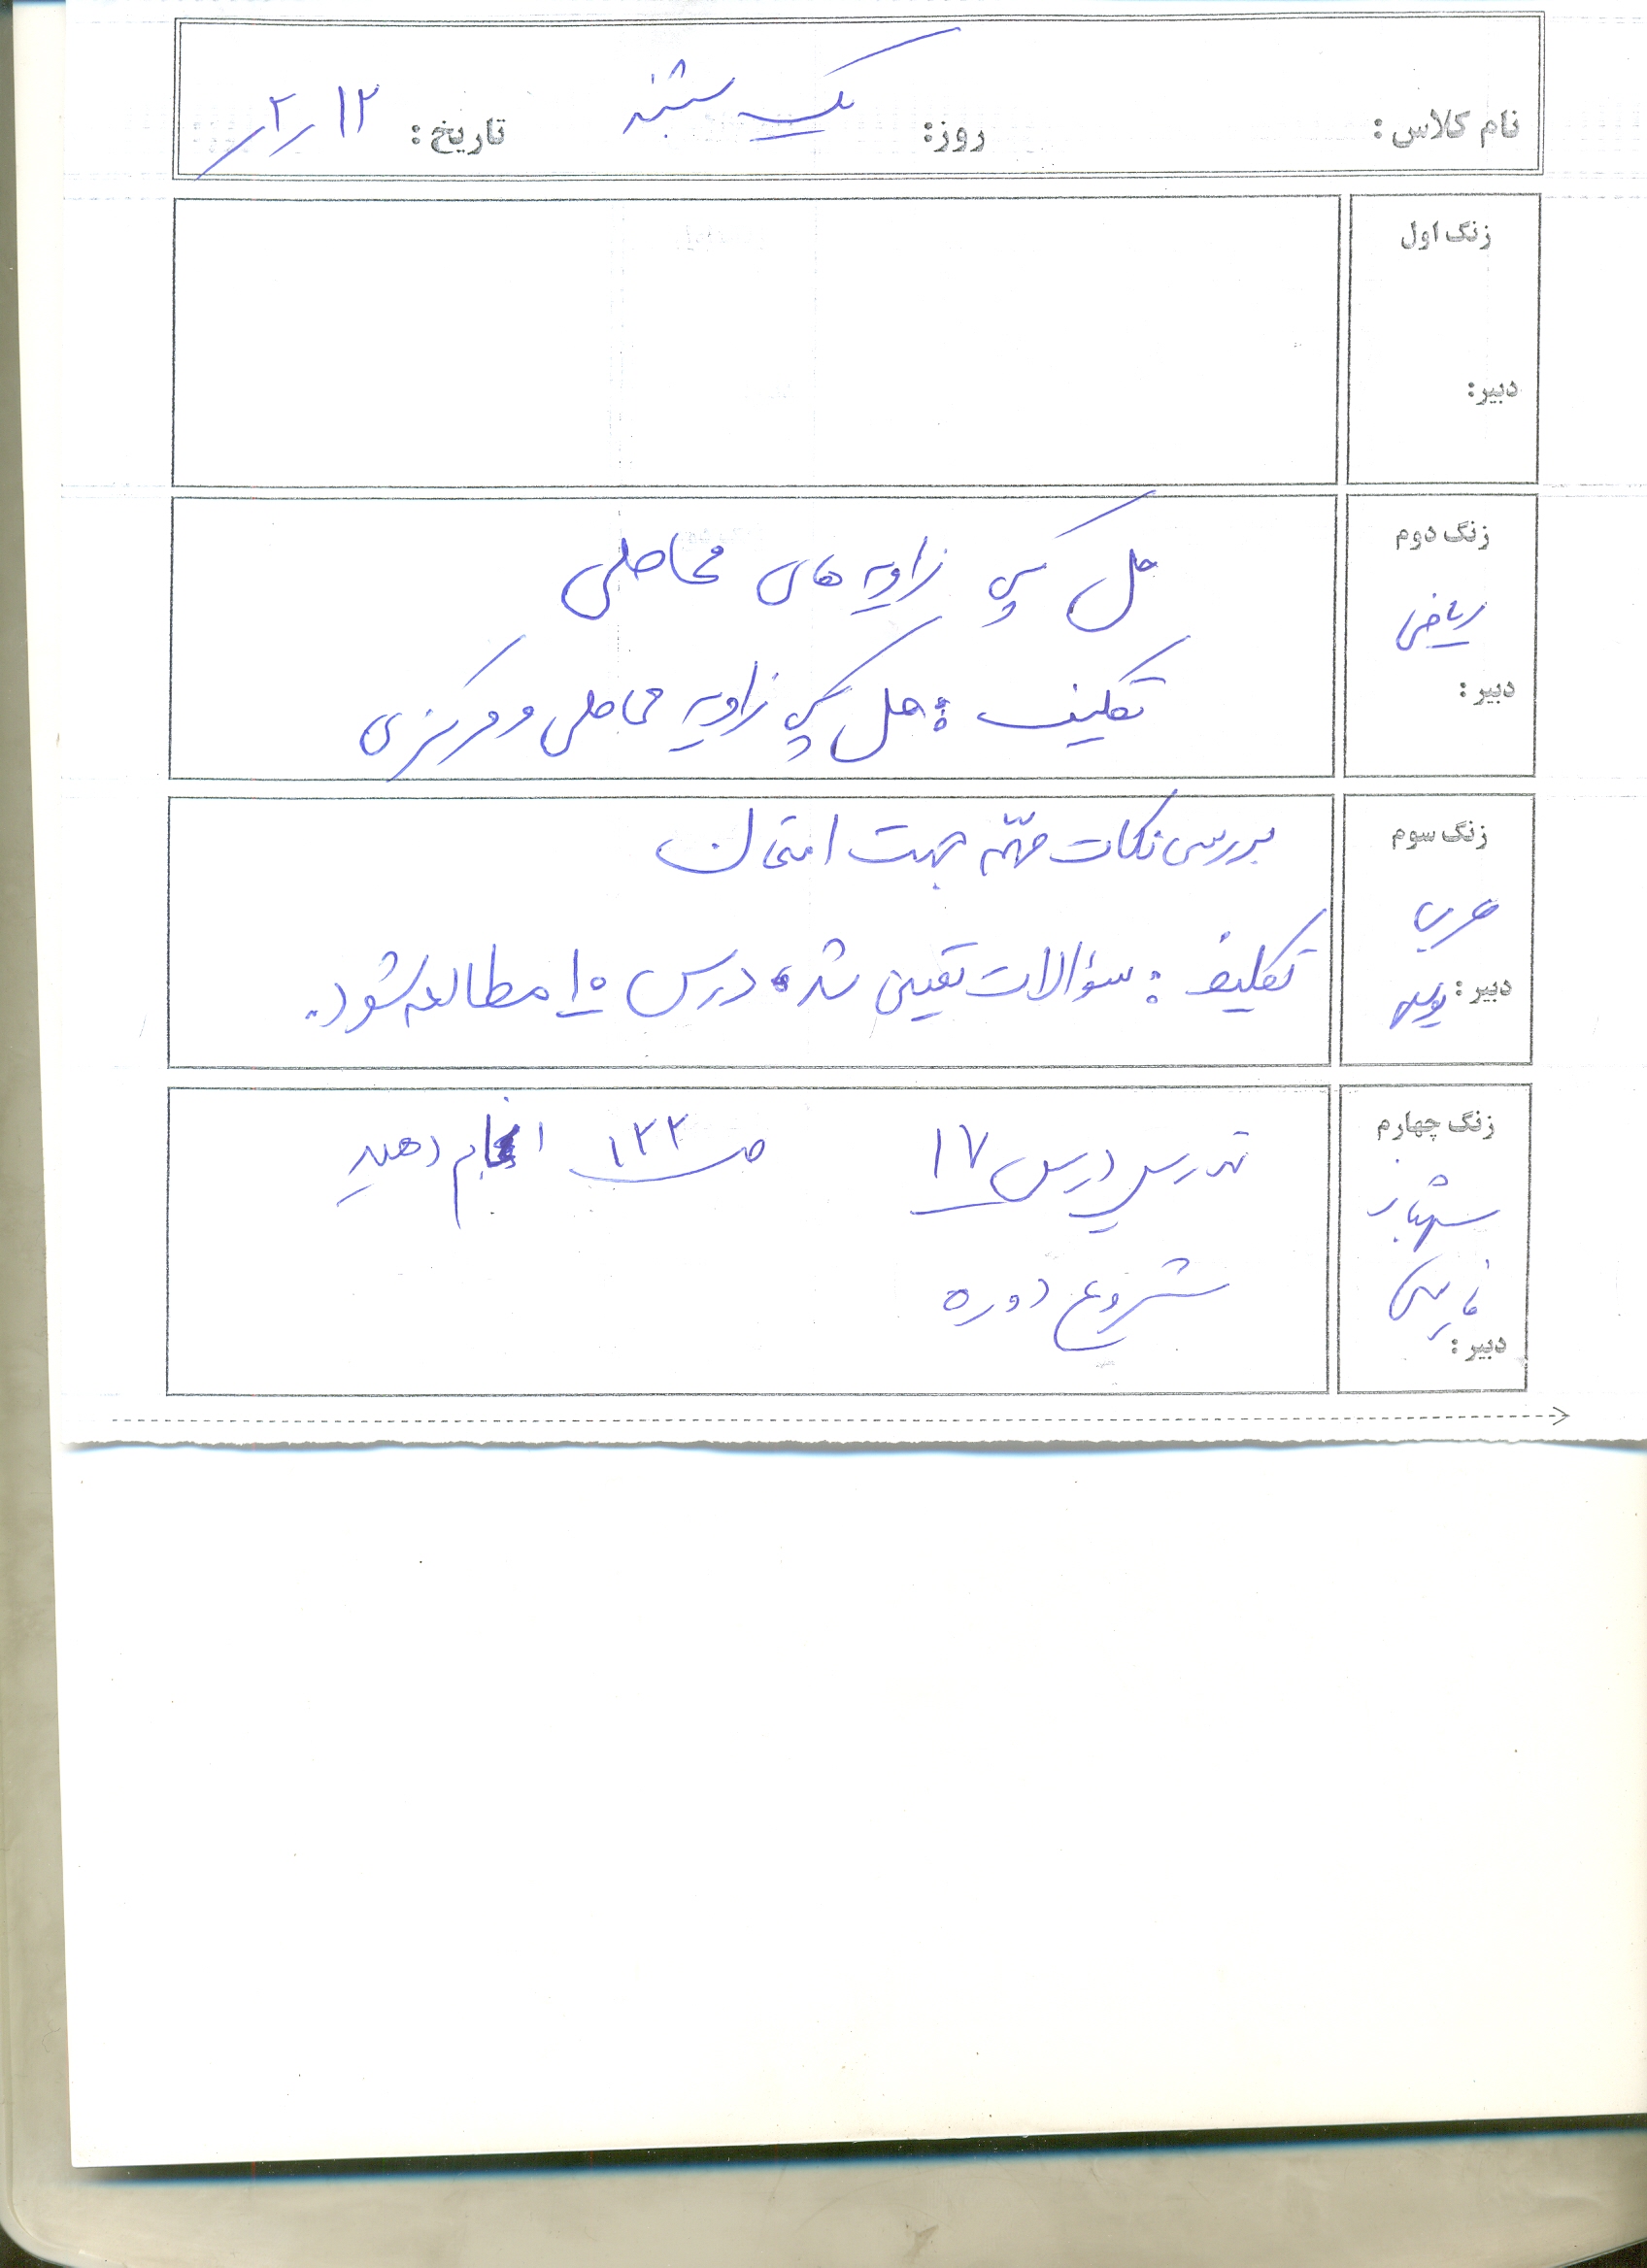 نام کلاس : روز: یک شنبه تاریخ : ۱۲ / ۲ /
زنگ اول
دبیر:
زنگ دوم
ریاضی
دبیر :
حل پلی کپی زاویه های محاطی
تکلیف : حل پلی کپی زاویه محاطی و مرکزی
زنگ سوم
عربی
دبیر :
بررسی نکات مهمّ جهت امتحان
تکلیف : سؤالات تعیین شده درس ۱۰ مطالعه شود.
زنگ چهارم
شهباز
فارسی
دبیر :
تدریس درس ۱۷ ص ۱۲۲ انجام دهید
شروع دوره